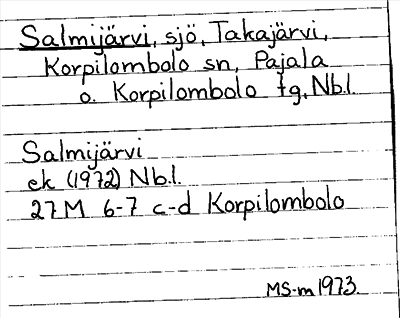 Salmijärvi, sjö, Takajärvi,
Korpilombolo sn, Pajala
o. Korpilombolo tg, Nb.l.
Salmijärvi
ek (1972) Nb.l.
27 M 6-7 c-d Korpilombolo
MS-m 1973.